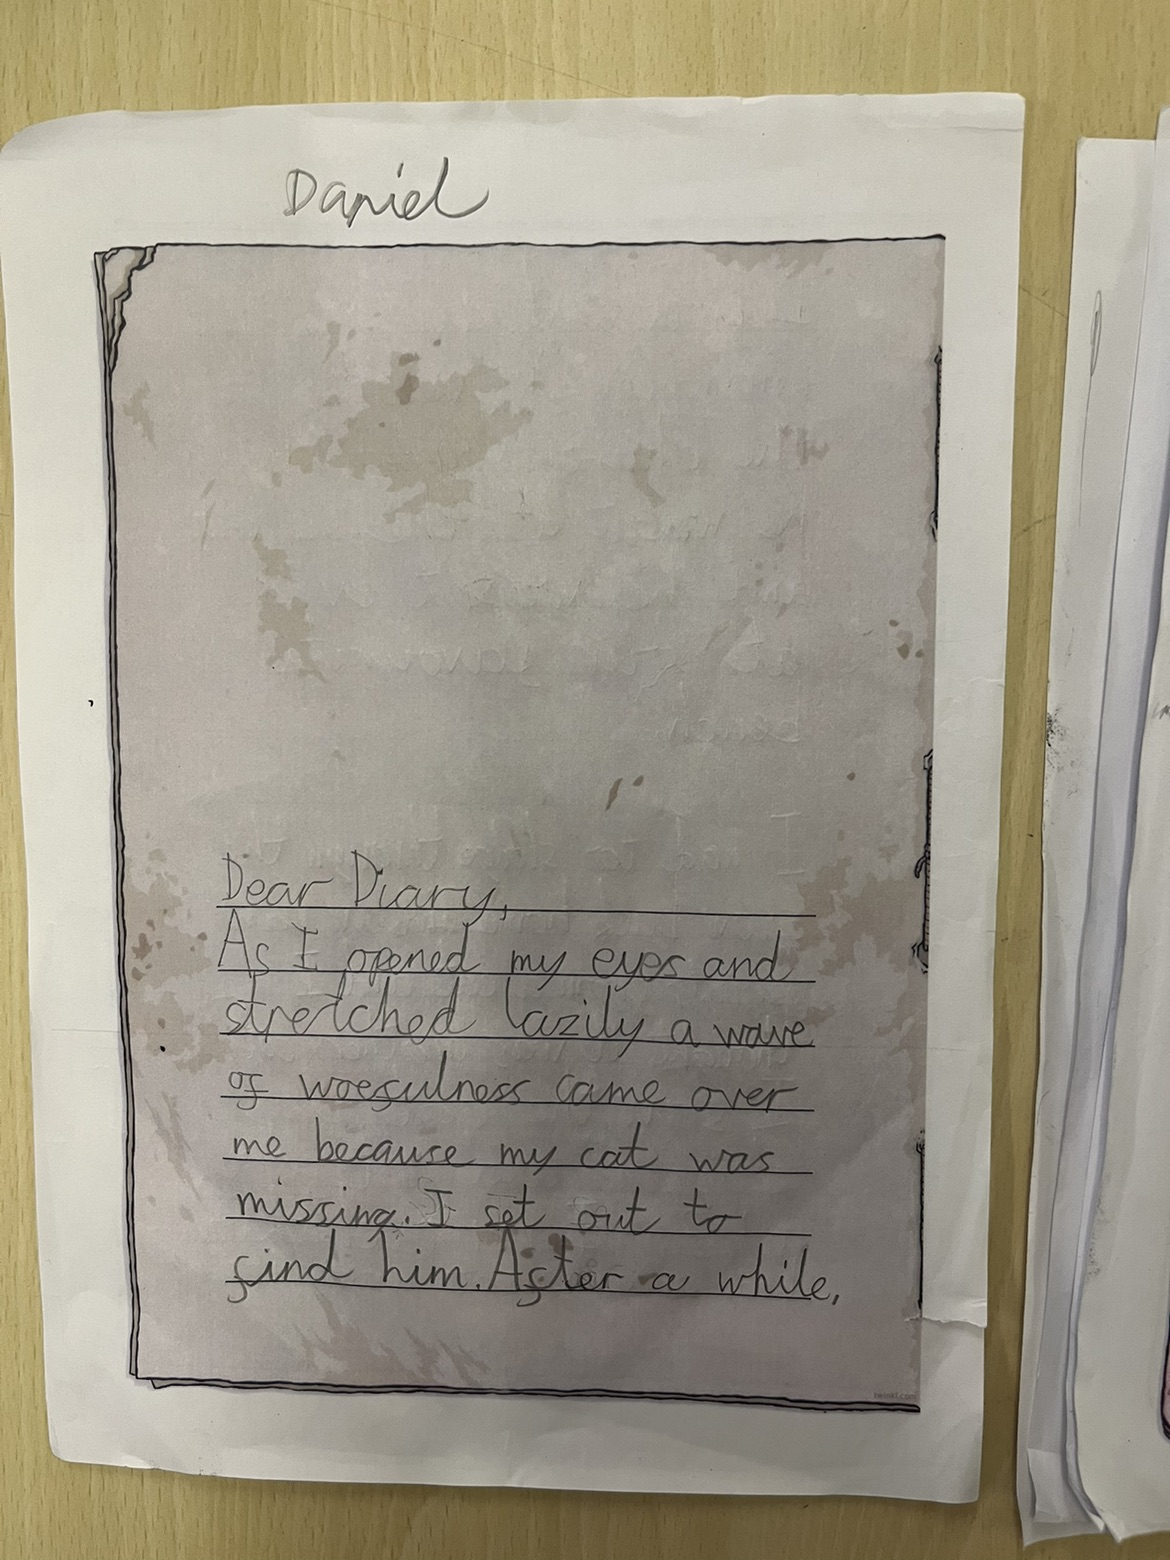 Daniel
Dear Diary,
As I opened my eyes and
stretched lazily a wave
of woefulness came over
me because my cat was
missing. I set out to
find him. After a while,
twinkl.com